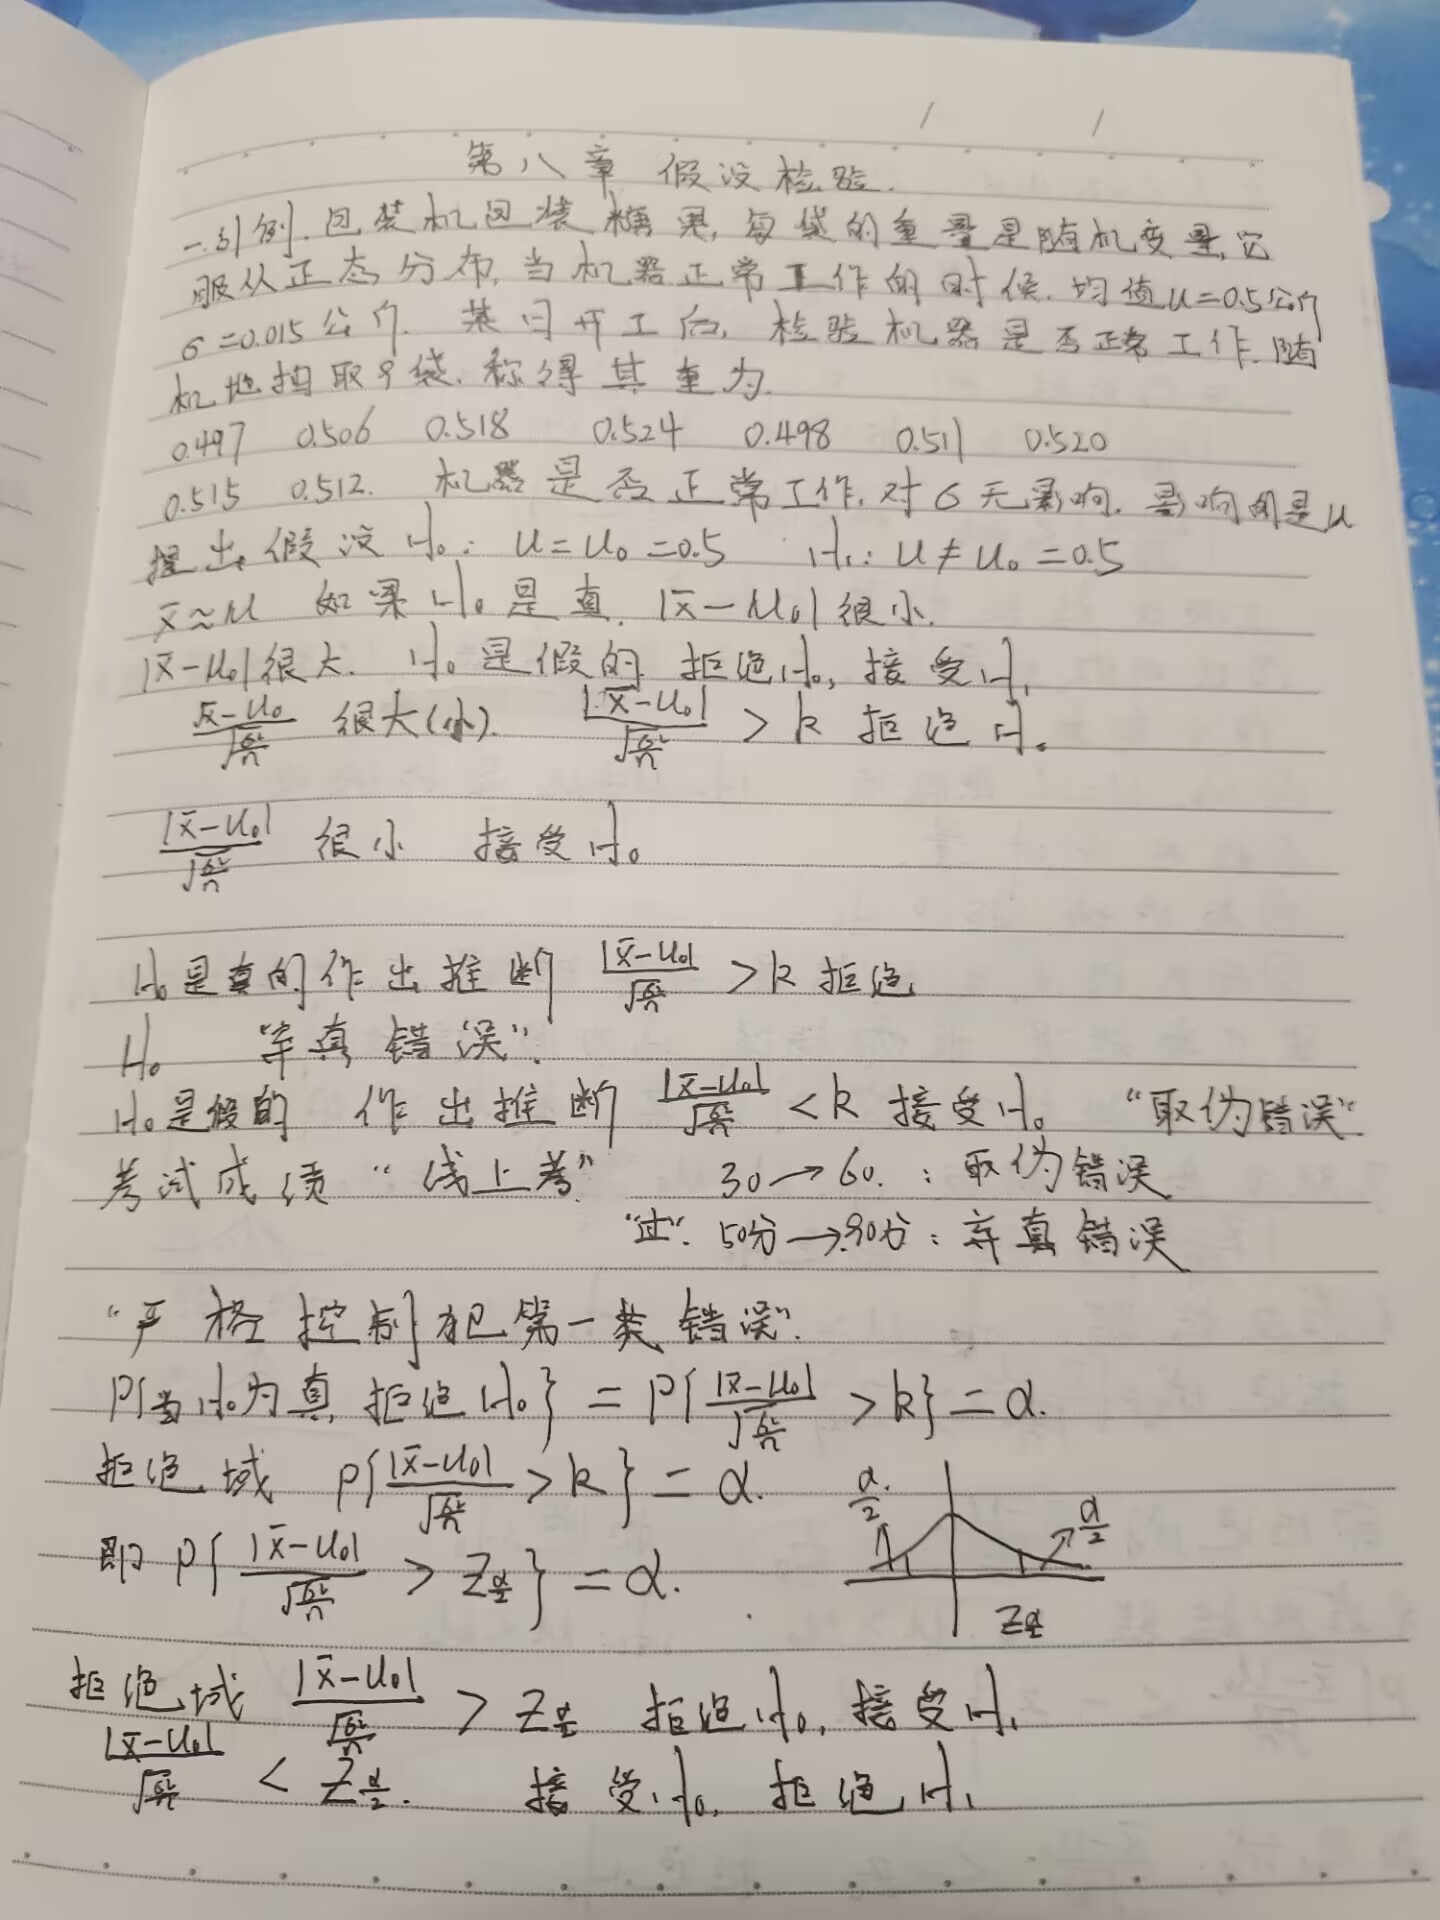 第八章 假设检验.
一.引例.包装机包装糖果,每袋的重量是随机变量,它
服从正态分布,当机器正常工作的时候.均值u=0.5公斤
σ=0.015公斤. 某日开工后,检验机器是否正常工作.随
机地抽取9袋.称得其重为.
0.497 0.506 0.518 0.524 0.498 0.511 0.520
0.515 0.512. 机器是否正常工作,对σ无影响.影响的是u
提出假设H₀: u=u₀=0.5 H₁: u≠u₀=0.5
x̄≈u 如果H₀是真. |x̄-u₀|很小.
|x̄-u₀|很大. H₀是假的 拒绝H₀,接受H₁
(x̄-u₀)/√(σ²/n) 很大(小). |x̄-u₀|/√(σ²/n) > k 拒绝H₀
|x̄-u₀|/√(σ²/n) 很小 接受H₀
H₀是真的作出推断 |x̄-u₀|/√(σ²/n) > k 拒绝
H₀ “弃真错误”.
H₀是假的 作出推断 |x̄-u₀|/√(σ²/n) < k 接受H₀ “取伪错误”
考试成绩 “线上考” 30→60. : 取伪错误
“过”. 50分→90分: 弃真错误
“严格控制犯第一类错误”.
P{当H₀为真,拒绝H₀} = P{|x̄-u₀|/√(σ²/n) > k} = α.
拒绝域 P{|x̄-u₀|/√(σ²/n) > k} = α. α/2 α/2
即 P{|x̄-u₀|/√(σ²/n) > Z_(α/2)} = α.
Z_(α/2)
拒绝域 |x̄-u₀|/√(σ²/n) > Z_(α/2) 拒绝H₀,接受H₁
|x̄-u₀|/√(σ²/n) < Z_(α/2). 接受H₀, 拒绝H₁